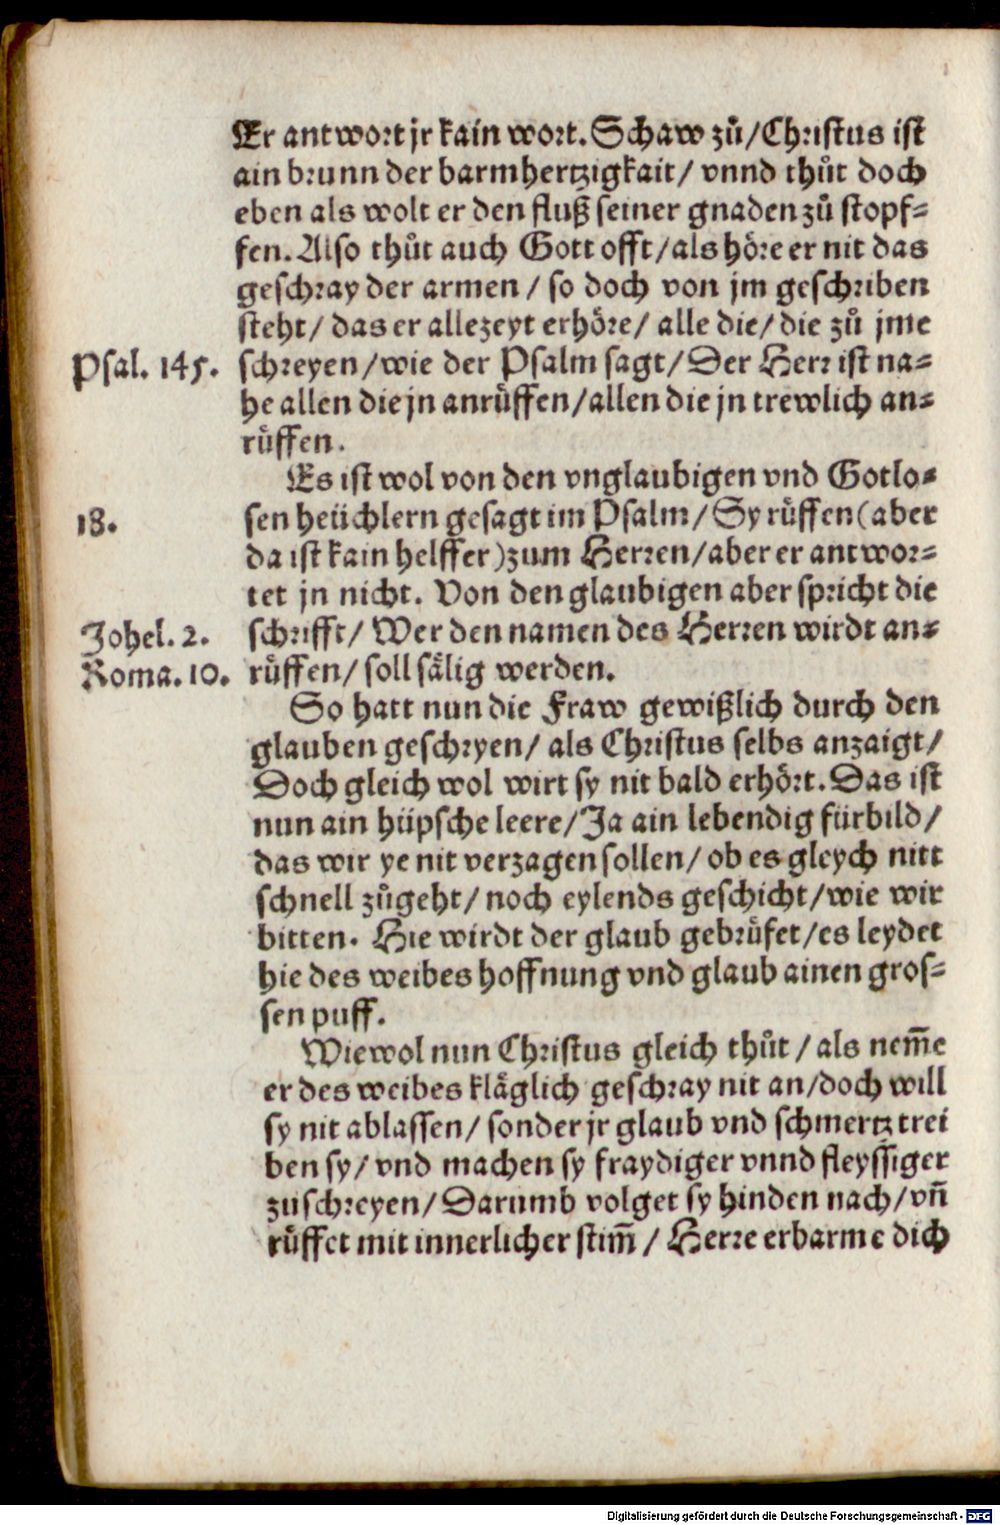 Er antwort jr kain wort. Schaw zů/Christus ist
ain brunn der barmhertzigkait/ vnnd thůt doch
eben als wolt er den fluß seiner gnaden zů stopf=
fen. Also thůt auch Gott offt/als höre er nit das
geschray der armen / so doch von jm geschriben
steht/ das er allezeyt erhöre/ alle die/ die zů jme
Psal. 145. schreyen/wie der Psalm sagt/ Der Herr ist na=
he allen die jn anrůffen/allen die jn trewlich an=
růffen.
Es ist wol von den vnglaubigen vnd Gotlo=
18. sen heüchlern gesagt im Psalm/ Sy růffen(aber
da ist kain helffer)zum Herren/aber er antwor=
tet jn nicht. Von den glaubigen aber spricht die
Johel. 2. schrifft/ Wer den namen des Herren wirdt an=
Roma. 10. růffen/ soll sälig werden.
So hatt nun die Fraw gewißlich durch den
glauben geschryen/ als Christus selbs anzaigt/
Doch gleich wol wirt sy nit bald erhört. Das ist
nun ain hüpsche leere/Ja ain lebendig fürbild/
das wir ye nit verzagen sollen/ ob es gleych nitt
schnell zůgeht/ noch eylends geschicht/wie wir
bitten. Hie wirdt der glaub gebrůfet/es leydet
hie des weibes hoffnung vnd glaub ainen gros=
sen puff.
Wiewol nun Christus gleich thůt / als nem̄e
er des weibes kläglich geschray nit an/doch will
sy nit ablassen/ sonder jr glaub vnd schmertz trei
ben sy/ vnd machen sy fraydiger vnnd fleyssiger
zuschreyen/ Darumb volget sy hinden nach/ vn̄
růffet mit innerlicher stim̄ / Herre erbarme dich
Digitalisierung gefördert durch die Deutsche Forschungsgemeinschaft - DFG